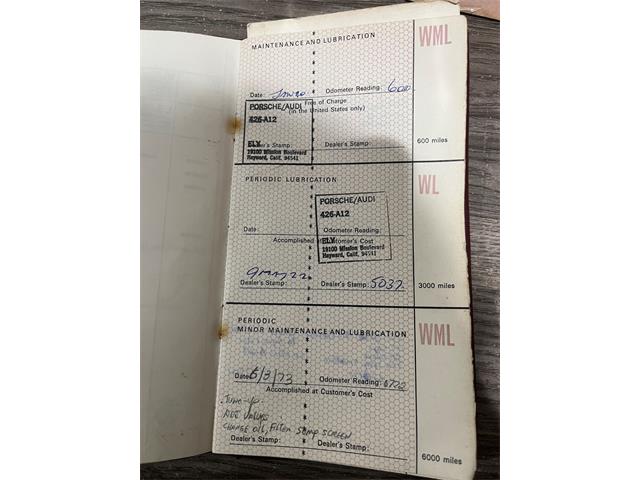 MAINTENANCE AND LUBRICATION
WML
Date:
Odometer Reading: 6000
Free of Charge
(in the United States only)
PORSCHE/AUDI
426-A12
ELY
19100 Mission Boulevard
Hayward, Calif. 94541
Dealer's Stamp:
Dealer's Stamp:
600 miles
PERIODIC LUBRICATION
WL
PORSCHE/AUDI
426-A12
Date:
Odometer Reading:
Accomplished at Customer's Cost
ELY
19100 Mission Boulevard
Hayward, Calif. 94541
Dealer's Stamp:
Dealer's Stamp: 5037
3000 miles
PERIODIC
MINOR MAINTENANCE AND LUBRICATION
WML
Date: 5/3/73
Odometer Reading: 6722
Accomplished at Customer's Cost
TUNE-UP
ADJ VALVE
CHANGE OIL, FILTER SUMP SCREEN
Dealer's Stamp:
Dealer's Stamp:
6000 miles